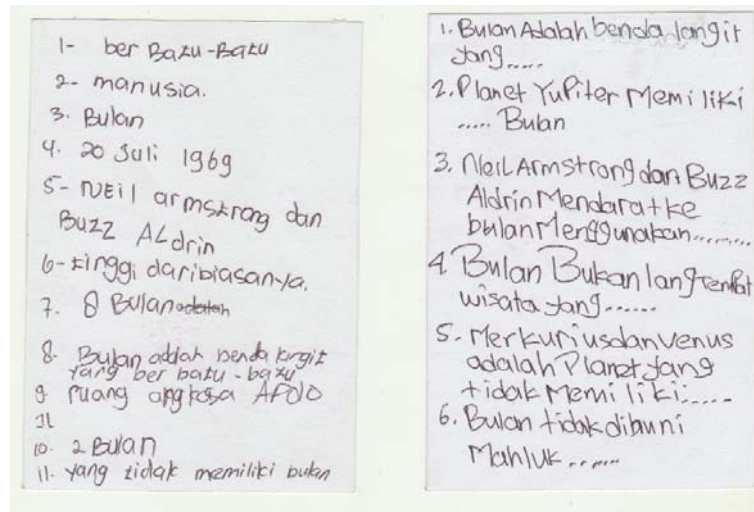 1- ber Batu-Batu
2- manusia.
3. Bulan
4. 20 Juli 1969
5- NEil armstrong dan
Buzz ALdrin
6- tinggi daribiasanya.
7. 8 Bulan adalah
8. Bulan adalah benda langit
yang ber batu-batu
9 ruang angkasa APOlO
JL
10. 2 Bulan
11. yang tidak memiliki bulan
1. Bulan Adalah benda langit
yang.....
2. Planet YuPiter Memiliki
..... Bulan
3. Neil Armstrong dan Buzz
Aldrin Mendarat ke
bulan Menggunakan.........
4 Bulan Bukan lang tempat
wisata yang......
5. Merkurius dan Venus
adalah Planet yang
tidak Memiliki.....
6. Bulan tidak dihuni
Mahluk......